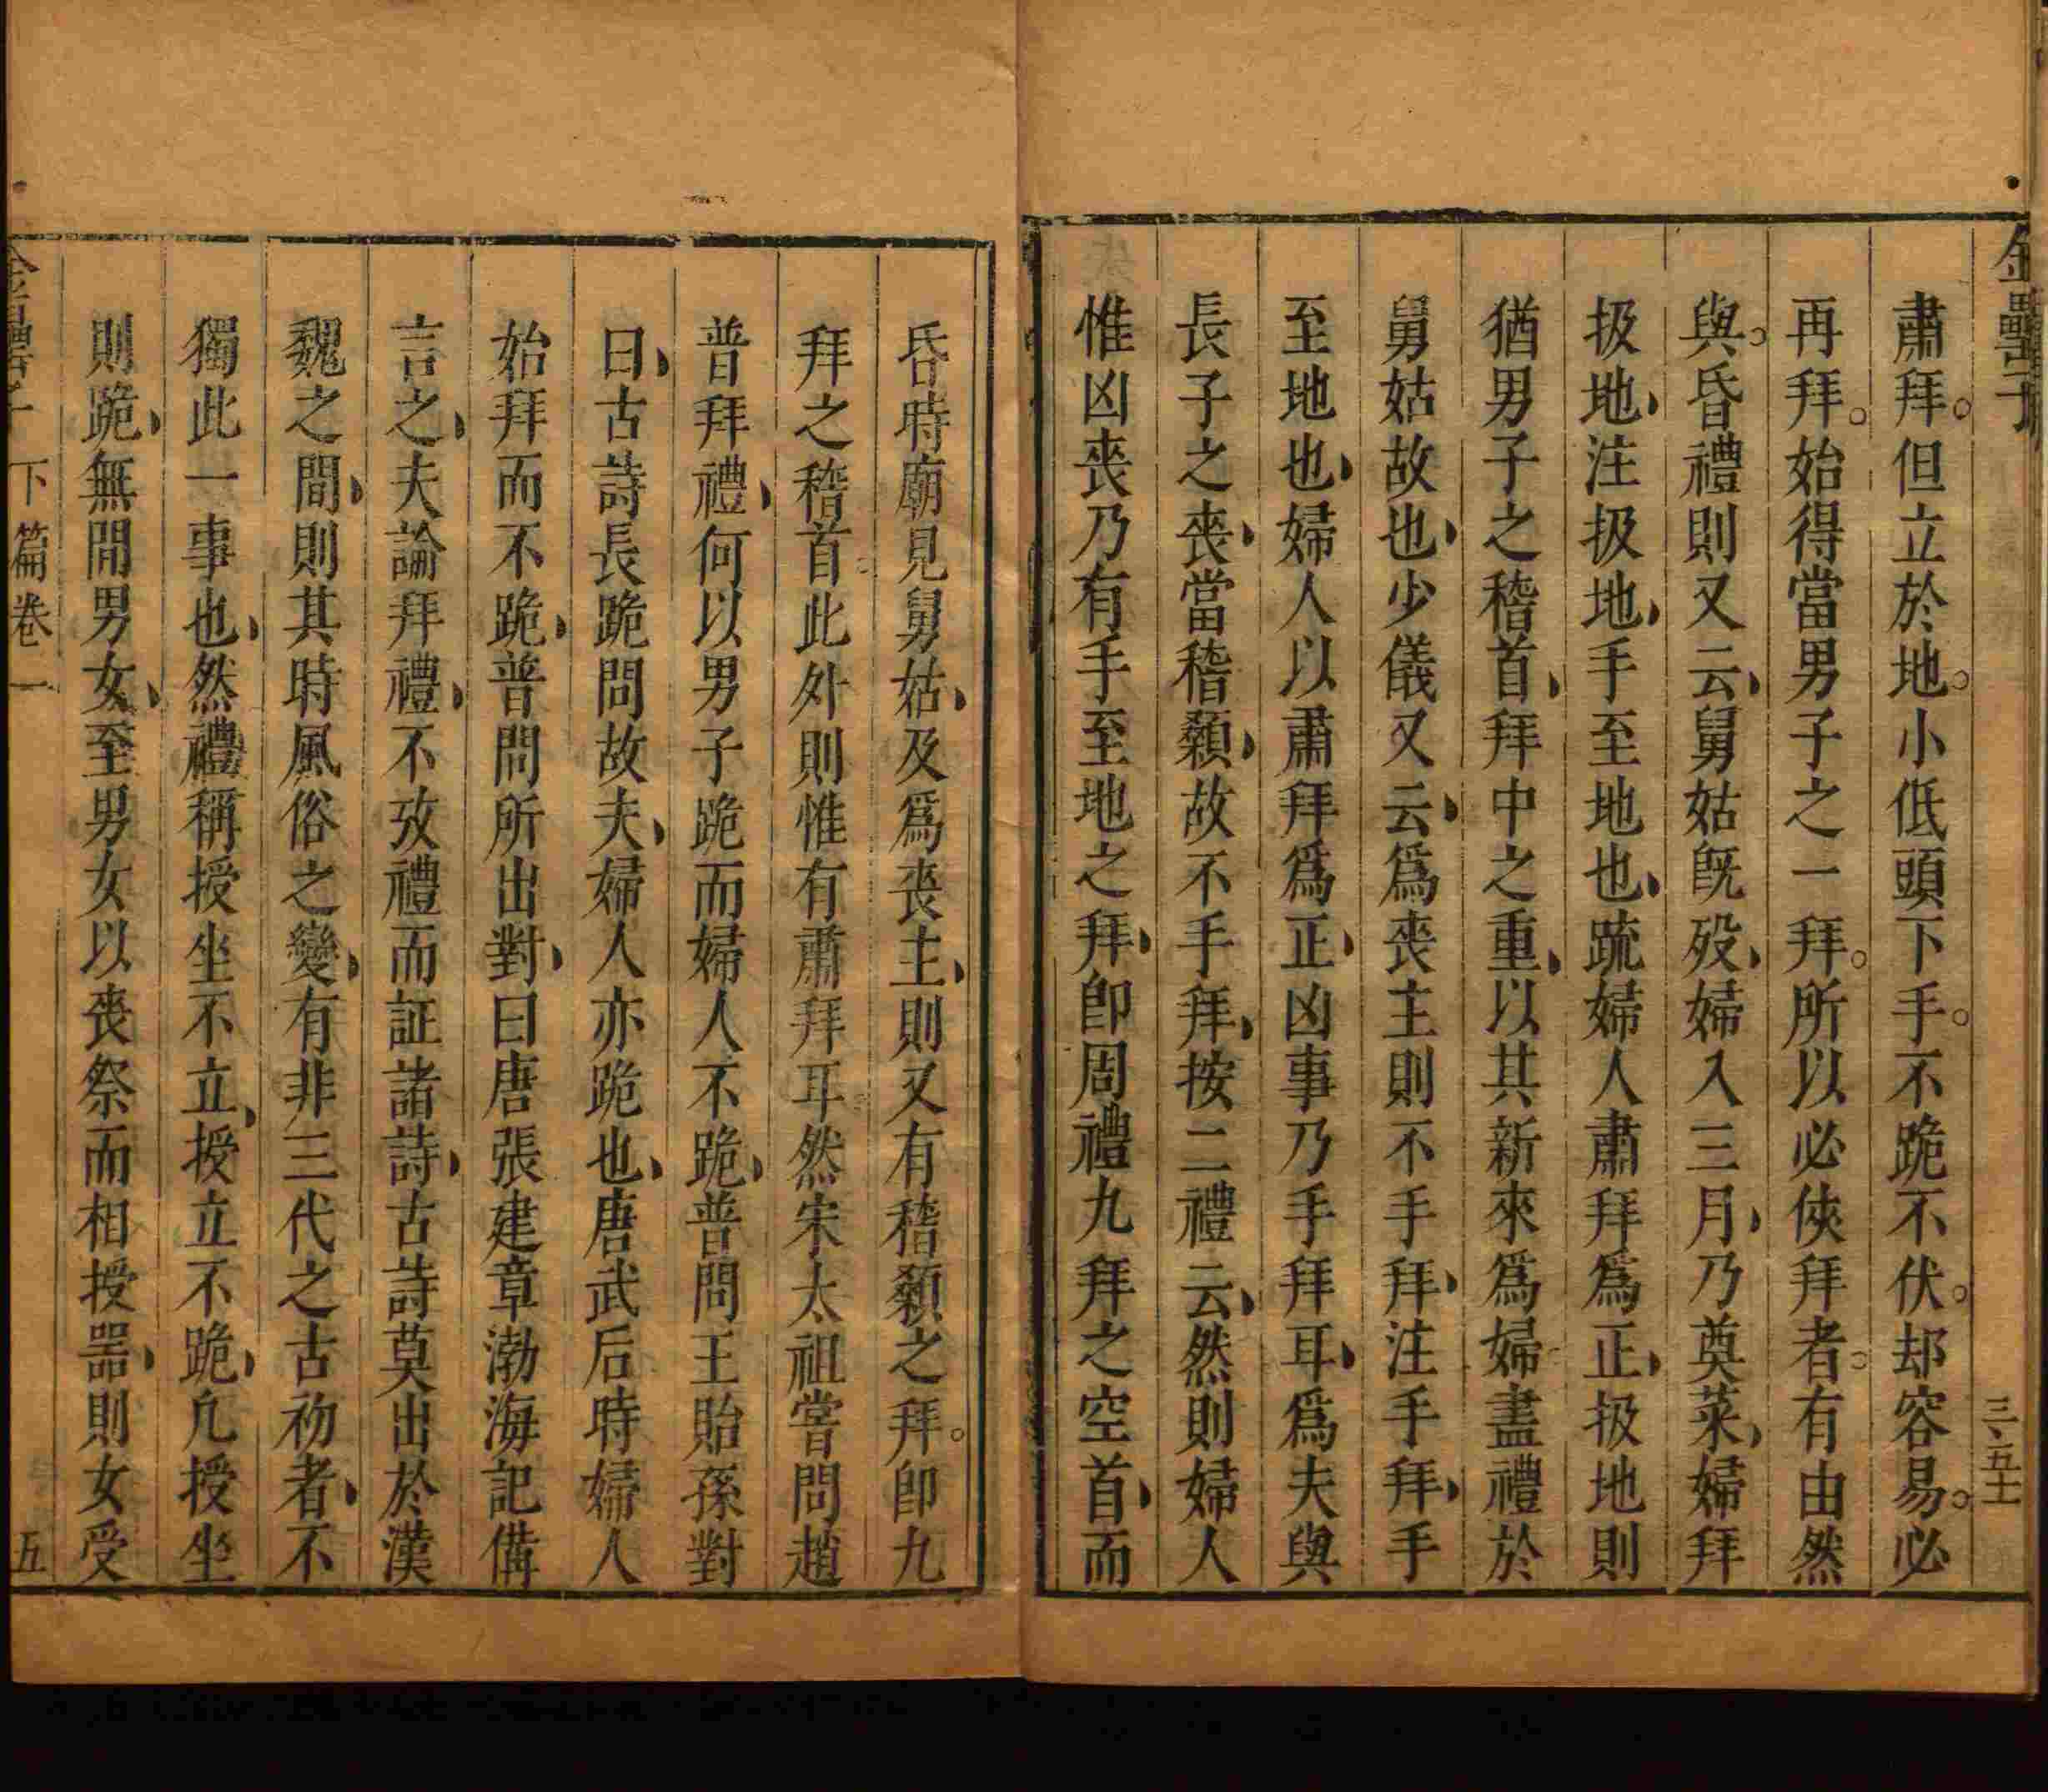 金罍子
肅拜。但立於地。小低頭下手。不跪不伏。却容易。必
再拜。始得當男子之一拜。所以必俠拜者。有由然
與。昏禮則又云、舅姑既歿、婦入三月、乃奠菜、婦拜
扱地、注扱地、手至地也、疏婦人肅拜爲正、扱地則
猶男子之稽首、拜中之重、以其新來爲婦盡禮於
舅姑故也、少儀又云、爲喪主則不手拜、注手拜、手
至地也、婦人以肅拜爲正、凶事乃手拜耳、爲夫與
長子之喪、當稽顙、故不手拜、按二禮云、然則婦人
惟凶喪乃有手至地之拜、卽周禮九拜之空首、而
昏時廟見舅姑、及爲喪主、則又有稽顙之拜。卽九
拜之稽首此外則惟有肅拜耳然宋太祖嘗問趙
普拜禮、何以男子跪而婦人不跪、普問王貽孫對
曰、古詩長跪問故夫、婦人亦跪也、唐武后時婦人
始拜而不跪、普問所出對、曰唐張建章渤海記備
言之、夫論拜禮、不攷禮而証諸詩、古詩莫出於漢
魏之間、則其時風俗之變、有非三代之古初者、不
獨此一事也、然禮稱授坐不立、授立不跪、凢授坐
則跪、無間男女、至男女以喪祭而相授噐、則女受
下篇卷一
五